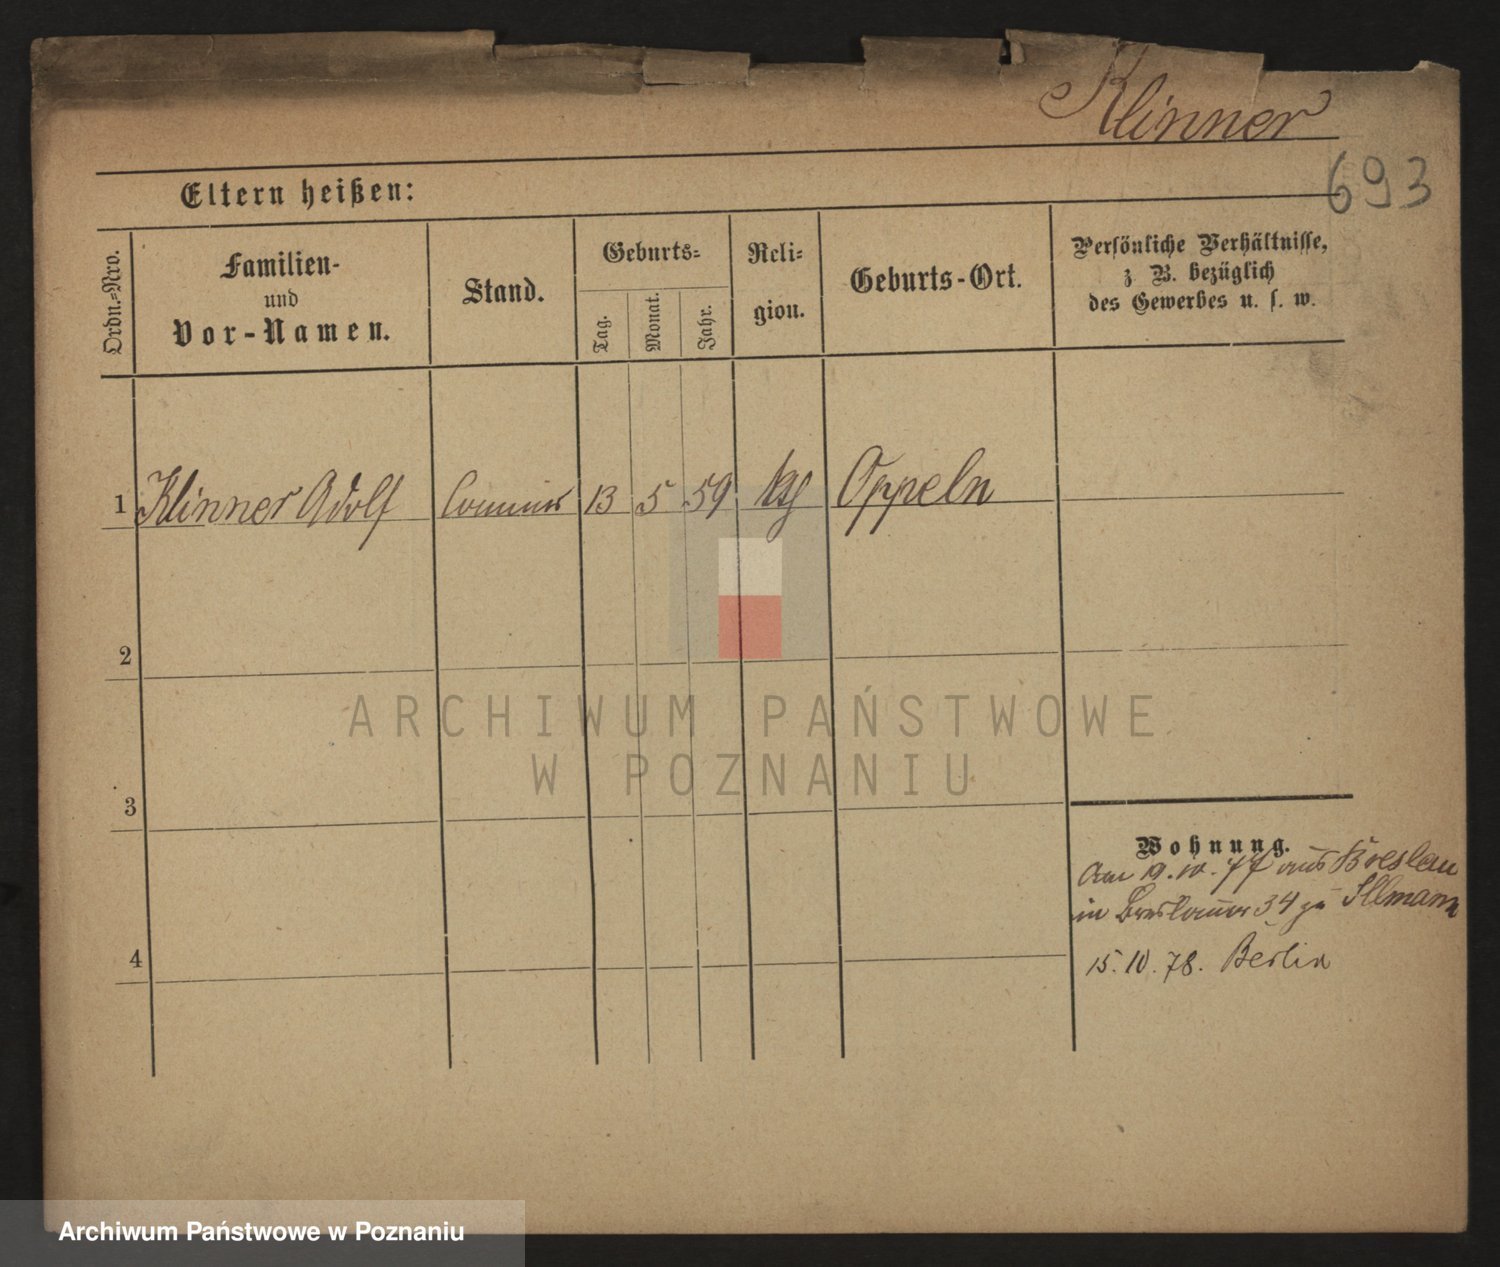 Klinner
693
Eltern heißen:
Ordn.=Nro.
Familien-
und
Vor-Namen.
Stand.
Geburts=
Tag.
Monat.
Jahr.
Reli=
gion.
Geburts-Ort.
Persönliche Verhältnisse,
z. B. bezüglich
des Gewerbes u. s. w.
1 Klinner Adolf Commis 13 5 59 kth Oppeln
2
ARCHIWUM PAŃSTWOWE
W POZNANIU
3
Wohnung.
Am 19. 10. 77 aus Breslau
in Breslauer 34 zu
4
15. 10. 78. Berlin
Archiwum Państwowe w Poznaniu